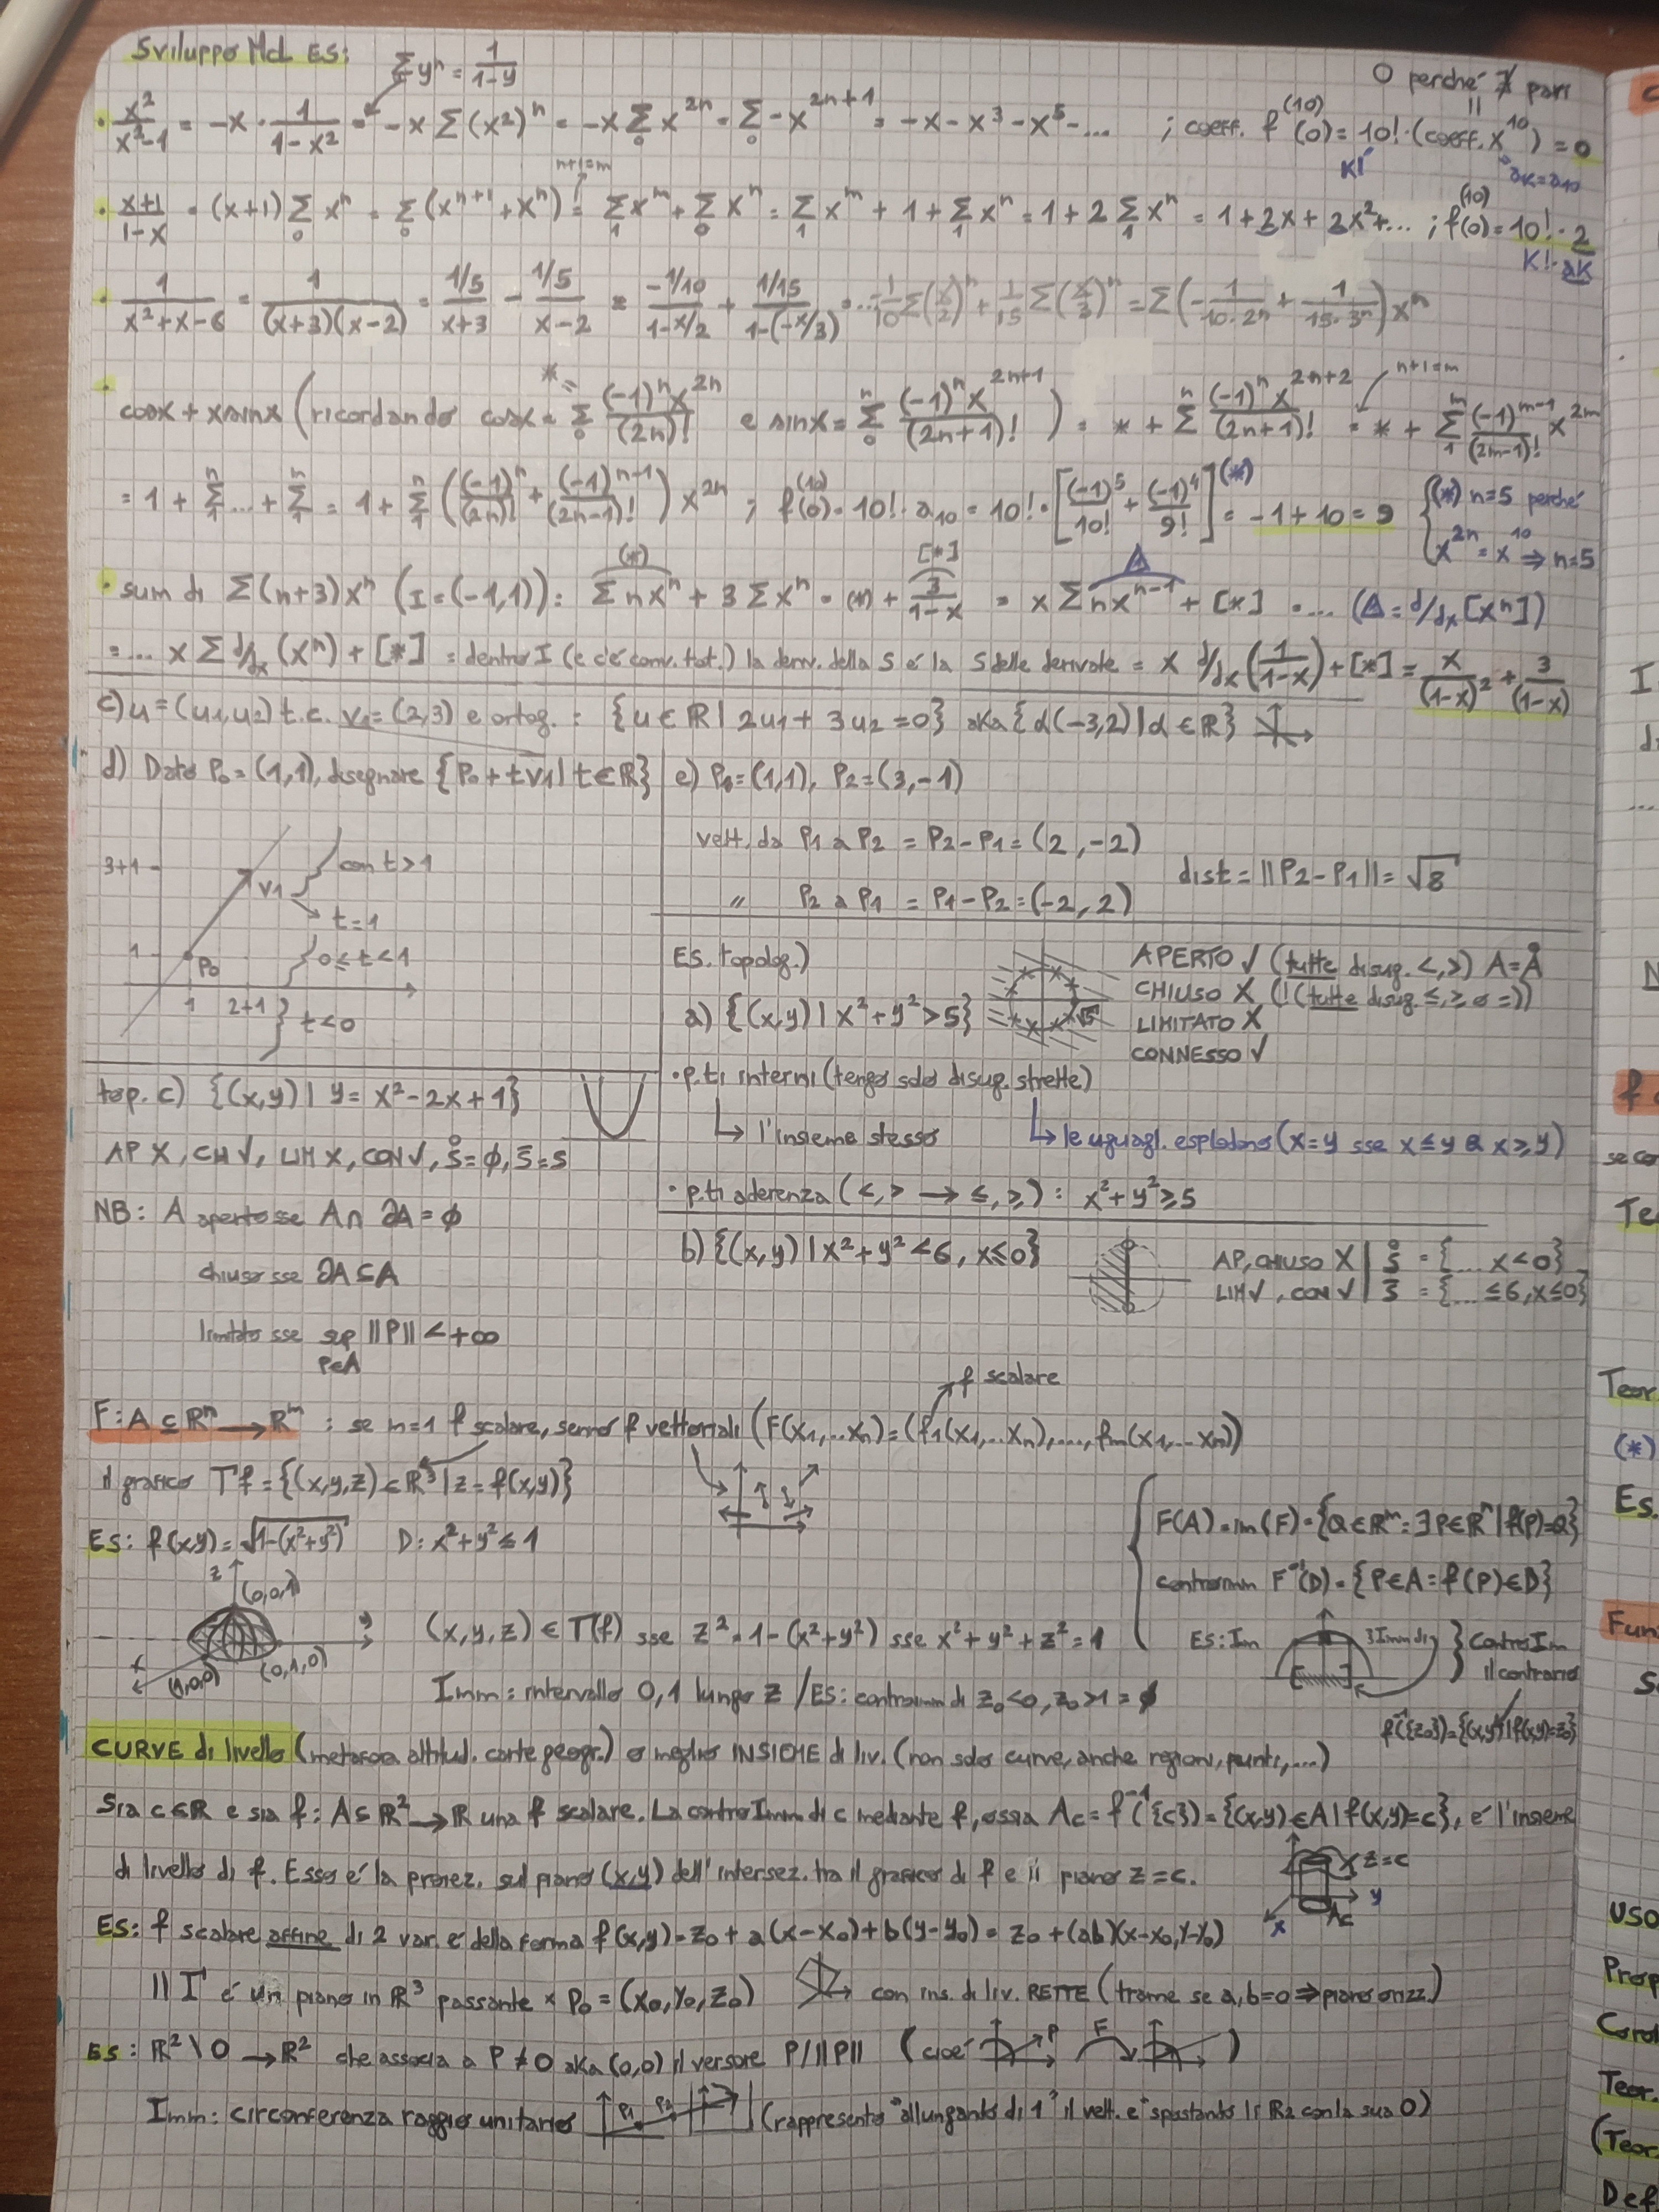 Sviluppo McL ES: Σyⁿ = 1/(1-y)
0 perché ∄ pari
• x²/(x²-1) = -x · 1/(1-x²) = -x Σ(x²)ⁿ = -x Σ₀ x²ⁿ = Σ₀ -x²ⁿ⁺¹ = -x - x³ - x⁵ - ... ; coeff. f⁽¹⁰⁾(0) = 10! · (coeff. x¹⁰) = 0
K! aK = a10
n+1=m
• (x+1)/(1-x) = (x+1) Σ₀ xⁿ = Σ₀ (xⁿ⁺¹ + xⁿ) = Σ₁ xᵐ + Σ₀ xⁿ = Σ₁ xᵐ + 1 + Σ₁ xⁿ = 1 + 2 Σ₁ xⁿ = 1 + 2x + 2x² + ... ; f⁽¹⁰⁾(0) = 10! · 2
K! · aK
• 1/(x²+x-6) = 1/((x+3)(x-2)) = (1/5)/(x+3) - (1/5)/(x-2) = (-1/10)/(1-x/2) + (1/15)/(1-(-x/3)) = ... -1/10 Σ(x/2)ⁿ + 1/15 Σ(x/3)ⁿ = Σ(-1/(10·2ⁿ) + 1/(15·3ⁿ)) xⁿ
• cosx + xsinx (ricordando cosx =* Σ₀ (-1)ⁿx²ⁿ/(2n)! e sinx = Σ₀ⁿ (-1)ⁿx²ⁿ⁺¹/(2n+1)!) = * + Σⁿ (-1)ⁿx²ⁿ⁺²/(2n+1)! = * + Σ₁ᵐ (-1)ᵐ⁻¹/(2m-1)! x²ᵐ
n+1=m
= 1 + Σ₁ⁿ ... + Σ₁ⁿ = 1 + Σ₁ⁿ ((-1)ⁿ/(2n)! + (-1)ⁿ⁻¹/(2n-1)!) x²ⁿ ; f⁽¹⁰⁾(0) = 10! · a10 = 10! · [(-1)⁵/10! + (-1)⁴/9!]⁽*⁾ = -1 + 10 = 9 { (*) n=5 perché
x²ⁿ = x¹⁰ ⇒ n=5
• sum di Σ(n+3)xⁿ (I = (-1,1)): Σnxⁿ (*) + 3Σxⁿ = (*) + 3/(1-x) [*] = x Σ nxⁿ⁻¹ Δ + [*] = ... (Δ = d/dx [xⁿ])
= ... x Σ d/dx (xⁿ) + [*] = dentro I (e c'è conv. tot.) la deriv. della S è la S delle derivate = x d/dx (1/(1-x)) + [*] = x/(1-x)² + 3/(1-x)
c) u = (u1,u2) t.c. v1 = (2,3) e ortog. : {u ∈ ℝ | 2u1 + 3u2 = 0} aka {α(-3,2) | α ∈ ℝ}
d) Dato P0 = (1,1), disegnare {P0 + tv1 | t ∈ ℝ}
3+1
v1
con t>1
t=1
1
P0
0≤t<1
1 2+1
t<0
e) P1 = (1,1), P2 = (3,-1)
vett. da P1 a P2 = P2-P1 = (2,-2)
" P2 a P1 = P1-P2 = (-2,2)
dist = ||P2-P1|| = √8
ES. topolog.)
a) {(x,y) | x²+y² > 5}
√5
APERTO √ (tutte disug. <,>) A = Å
CHIUSO X (!(tutte disug. ≤,≥ o =))
LIMITATO X
CONNESSO √
• p.ti interni (tengo solo disug. strette)
↳ l'insieme stesso
↳ le uguagl. esplodono (x=y sse x≤y & x≥y)
• p.ti aderenza (<,> → ≤,≥) : x²+y² ≥ 5
b) {(x,y) | x²+y² < 6, x≤0}
AP, CHIUSO X | S̊ = {... x<0}
LIM √, CON √ | S̄ = {... ≤6, x≤0}
top. c) {(x,y) | y = x²-2x+1}
AP X, CH √, LIM X, CON √, S̊ = ∅, S̄ = S
NB: A aperto sse A ∩ ∂A = ∅
chiuso sse ∂A ⊆ A
limitato sse sup ||P|| < +∞
P∈A
f scalare
F: A ⊆ ℝⁿ → ℝᵐ : se m=1 f scalare, sennò f vettoriali (F(x1,...xn) = (f1(x1,...xn),..., fm(x1,...xn))
il grafico Γf = {(x,y,z) ∈ ℝ³ | z = f(x,y)}
ES: f(x,y) = √(1-(x²+y²)) D: x²+y² ≤ 1
z
(0,0,1)
y
x
(1,0,0)
(0,1,0)
(x,y,z) ∈ Γ(f) sse z² = 1-(x²+y²) sse x²+y²+z² = 1
Imm: intervallo 0,1 lungo z / ES: controimm di z0<0, z0>1 = ∅
F(A) = im(F) = {Q ∈ ℝᵐ : ∃P ∈ ℝⁿ | f(P)=Q}
controimm F⁻¹(D) = {P ∈ A : f(P) ∈ D}
ES: Im
} ControIm
il contrario
f⁻¹({z0}) = {(x,y) | f(x,y)=z0}
CURVE di livello (metafora altitud. carte geogr.) o meglio INSIEME di liv. (non solo curve, anche regioni, punti,...)
Sia c∈ℝ e sia f: A ⊆ ℝ² → ℝ una f scalare. La controImm di c mediante f, ossia Ac = f⁻¹({c}) = {(x,y) ∈ A | f(x,y)=c}, è l'insieme
di livello di f. Esso è la proiez. sul piano (x,y) dell'intersez. tra il grafico di f e il piano z=c.
z=c
y
Ac
x
ES: f scalare affine di 2 var. è della forma f(x,y) = z0 + a(x-x0) + b(y-y0) = z0 + (ab)(x-x0,y-y0)
Il Γ è un piano in ℝ³ passante x P0 = (x0,y0,z0) con ins. di liv. RETTE (tranne se a,b=0 ⇒ piano orizz.)
ES: ℝ² \ 0 → ℝ² che associa a P ≠ 0 aka (0,0) il versore P/||P|| (cioè P F )
Imm: circonferenza raggio unitario P1 P2 (rappresento "allungando di 1" il vett. e "spostando lì ℝ2 con la sua 0)